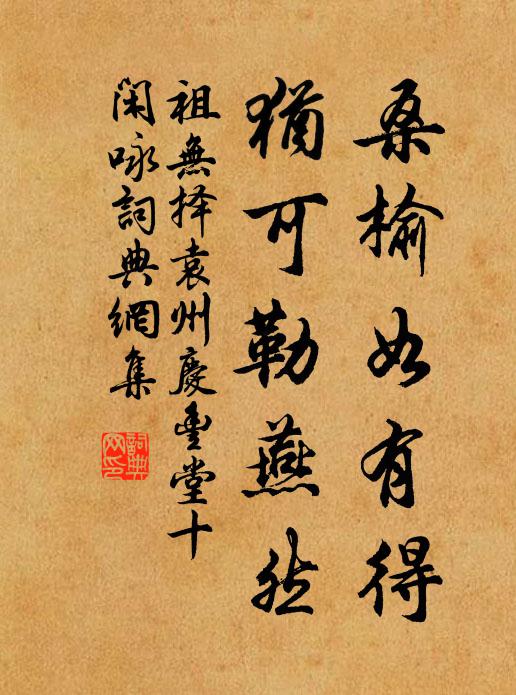 桑榆如有得
猶可勒燕然
祖無择袁州慶豊堂十
閑咏詞典網集
詞典
网印